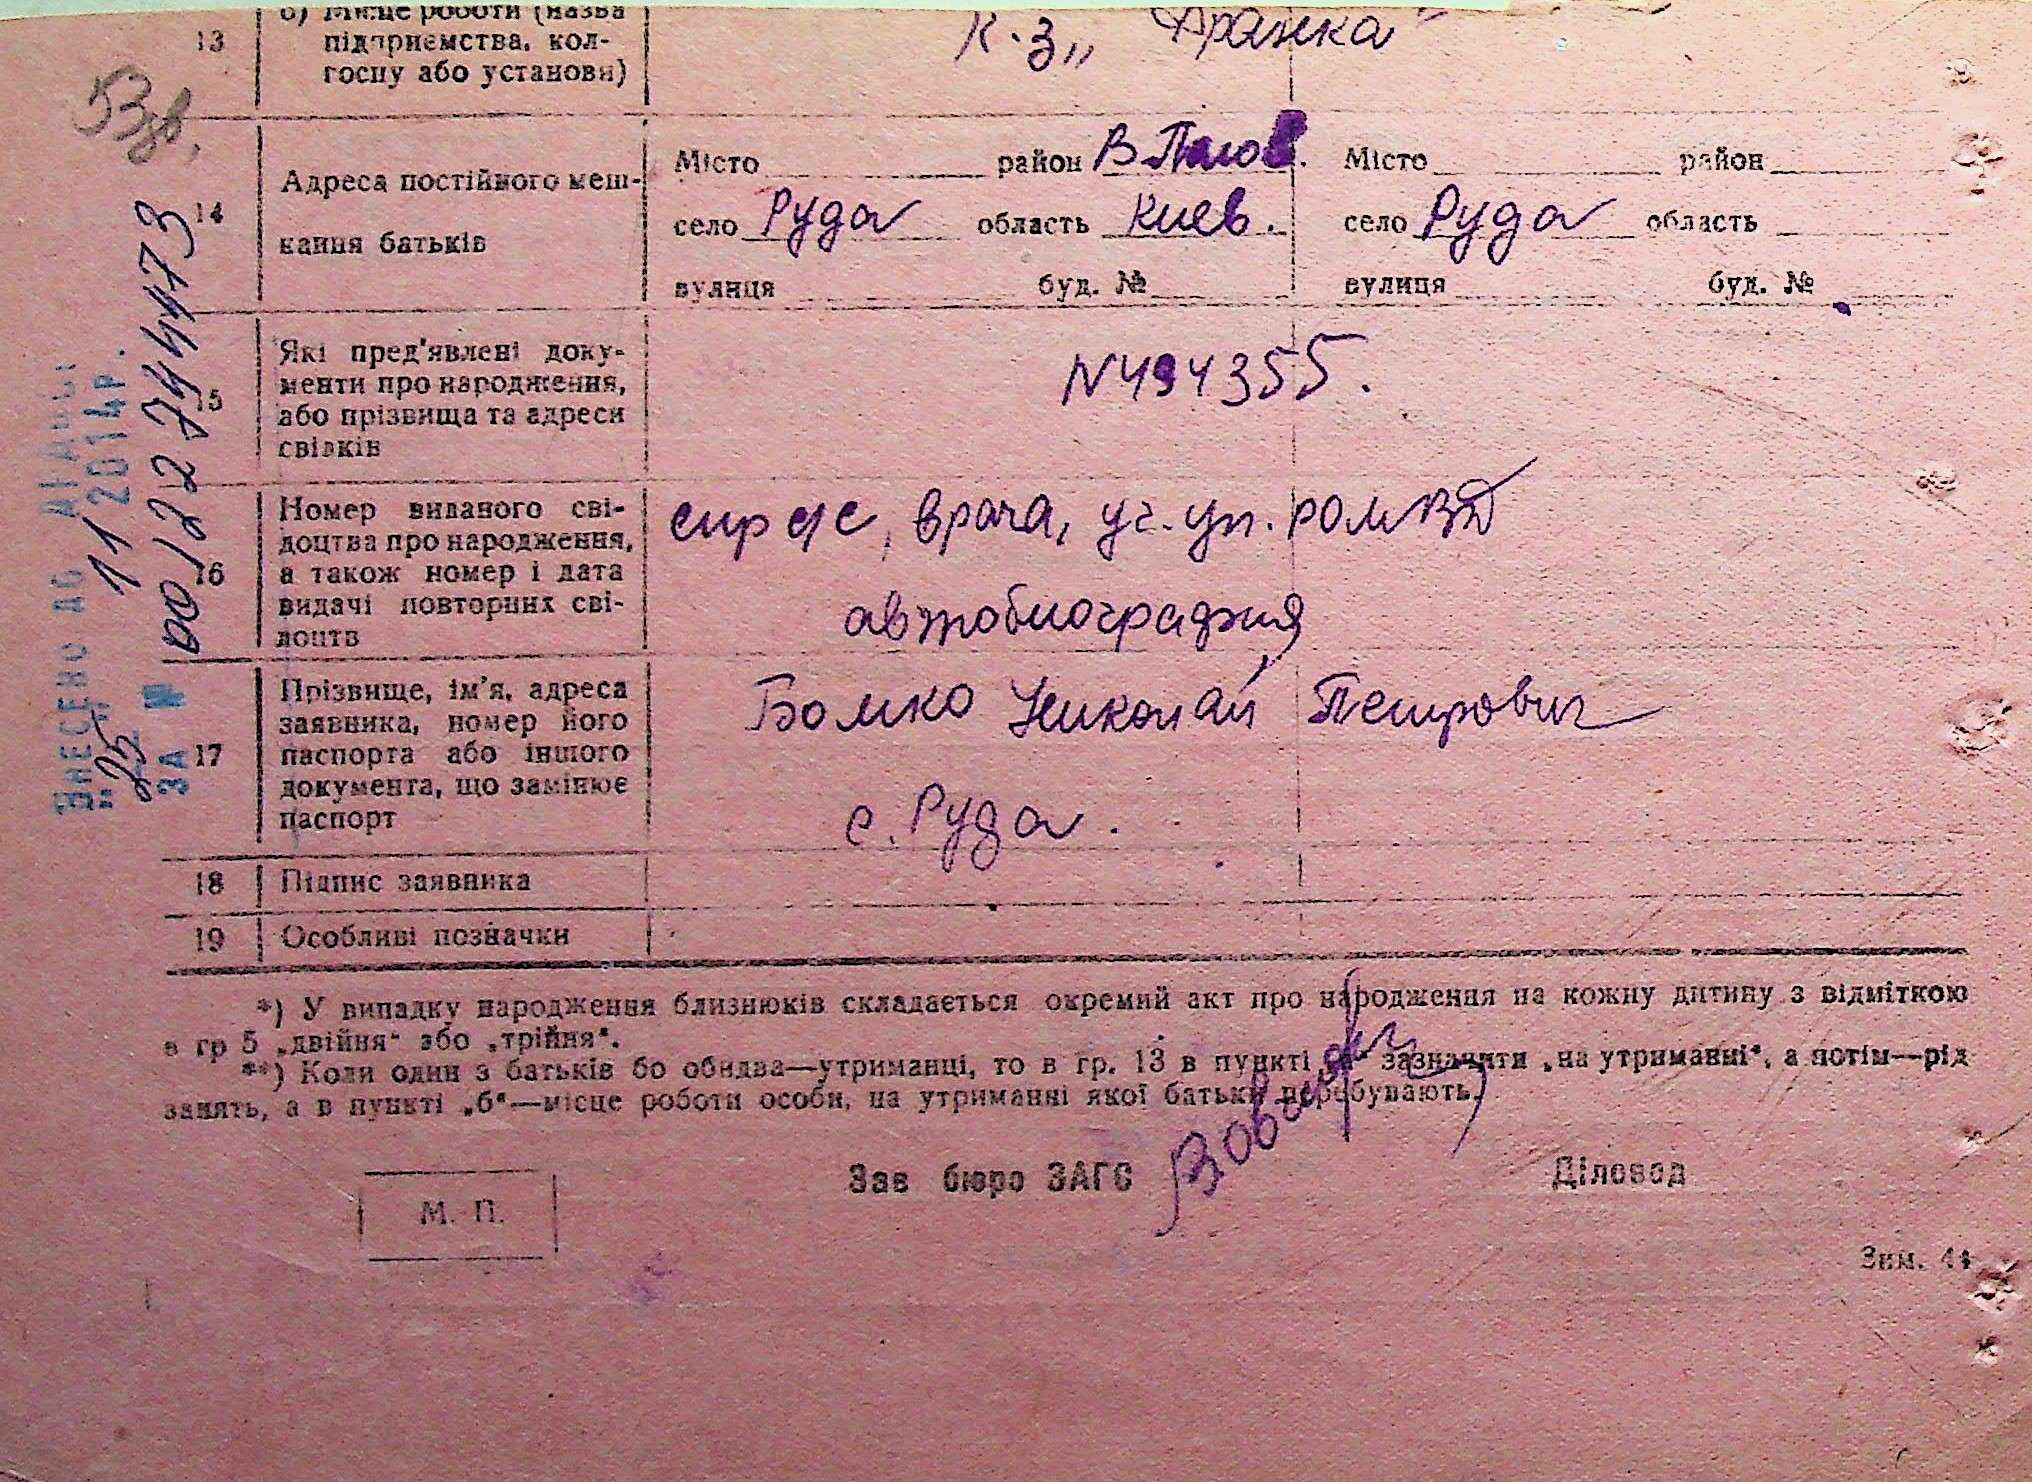 13 б) Місце роботи (назва
підприємства, кол-
госпу або установи)
к-з „Франка"
14 Адреса постійного меш-
кання батьків
Місто район Місто район
село Руда область Киев. село Руда область
вулиця буд. № вулиця буд. №
15 Які пред'явлені доку-
менти про народження,
або прізвища та адреси
свідків
N494355.
16 Номер виданого сві-
доцтва про народження,
а також номер і дата
видачі повторних сві-
доцтв
врача, уч. уп.
автобиография
17 Прізвище, ім'я, адреса
заявника, номер його
паспорта або іншого
документа, що замінює
паспорт
Бомко Николай Петрович
с. Руда.
18 Підпис заявника
19 Особливі позначки
*) У випадку народження близнюків складається окремий акт про народження на кожну дитину з відміткою
в гр 5 „двійня“ або „трійня“.
**) Коли один з батьків бо обидва—утриманці, то в гр. 13 в пункті „а“ зазначити „на утриманні“, а потім—рід
занять, а в пункті „б“—місце роботи особи, на утриманні якої батьки перебувають.
Зав бюро ЗАГС Діловод
М. П.
Зим. 44
ВНЕСЕНО ДО
„25“ 11 2014р.
ЗА № 00122744473